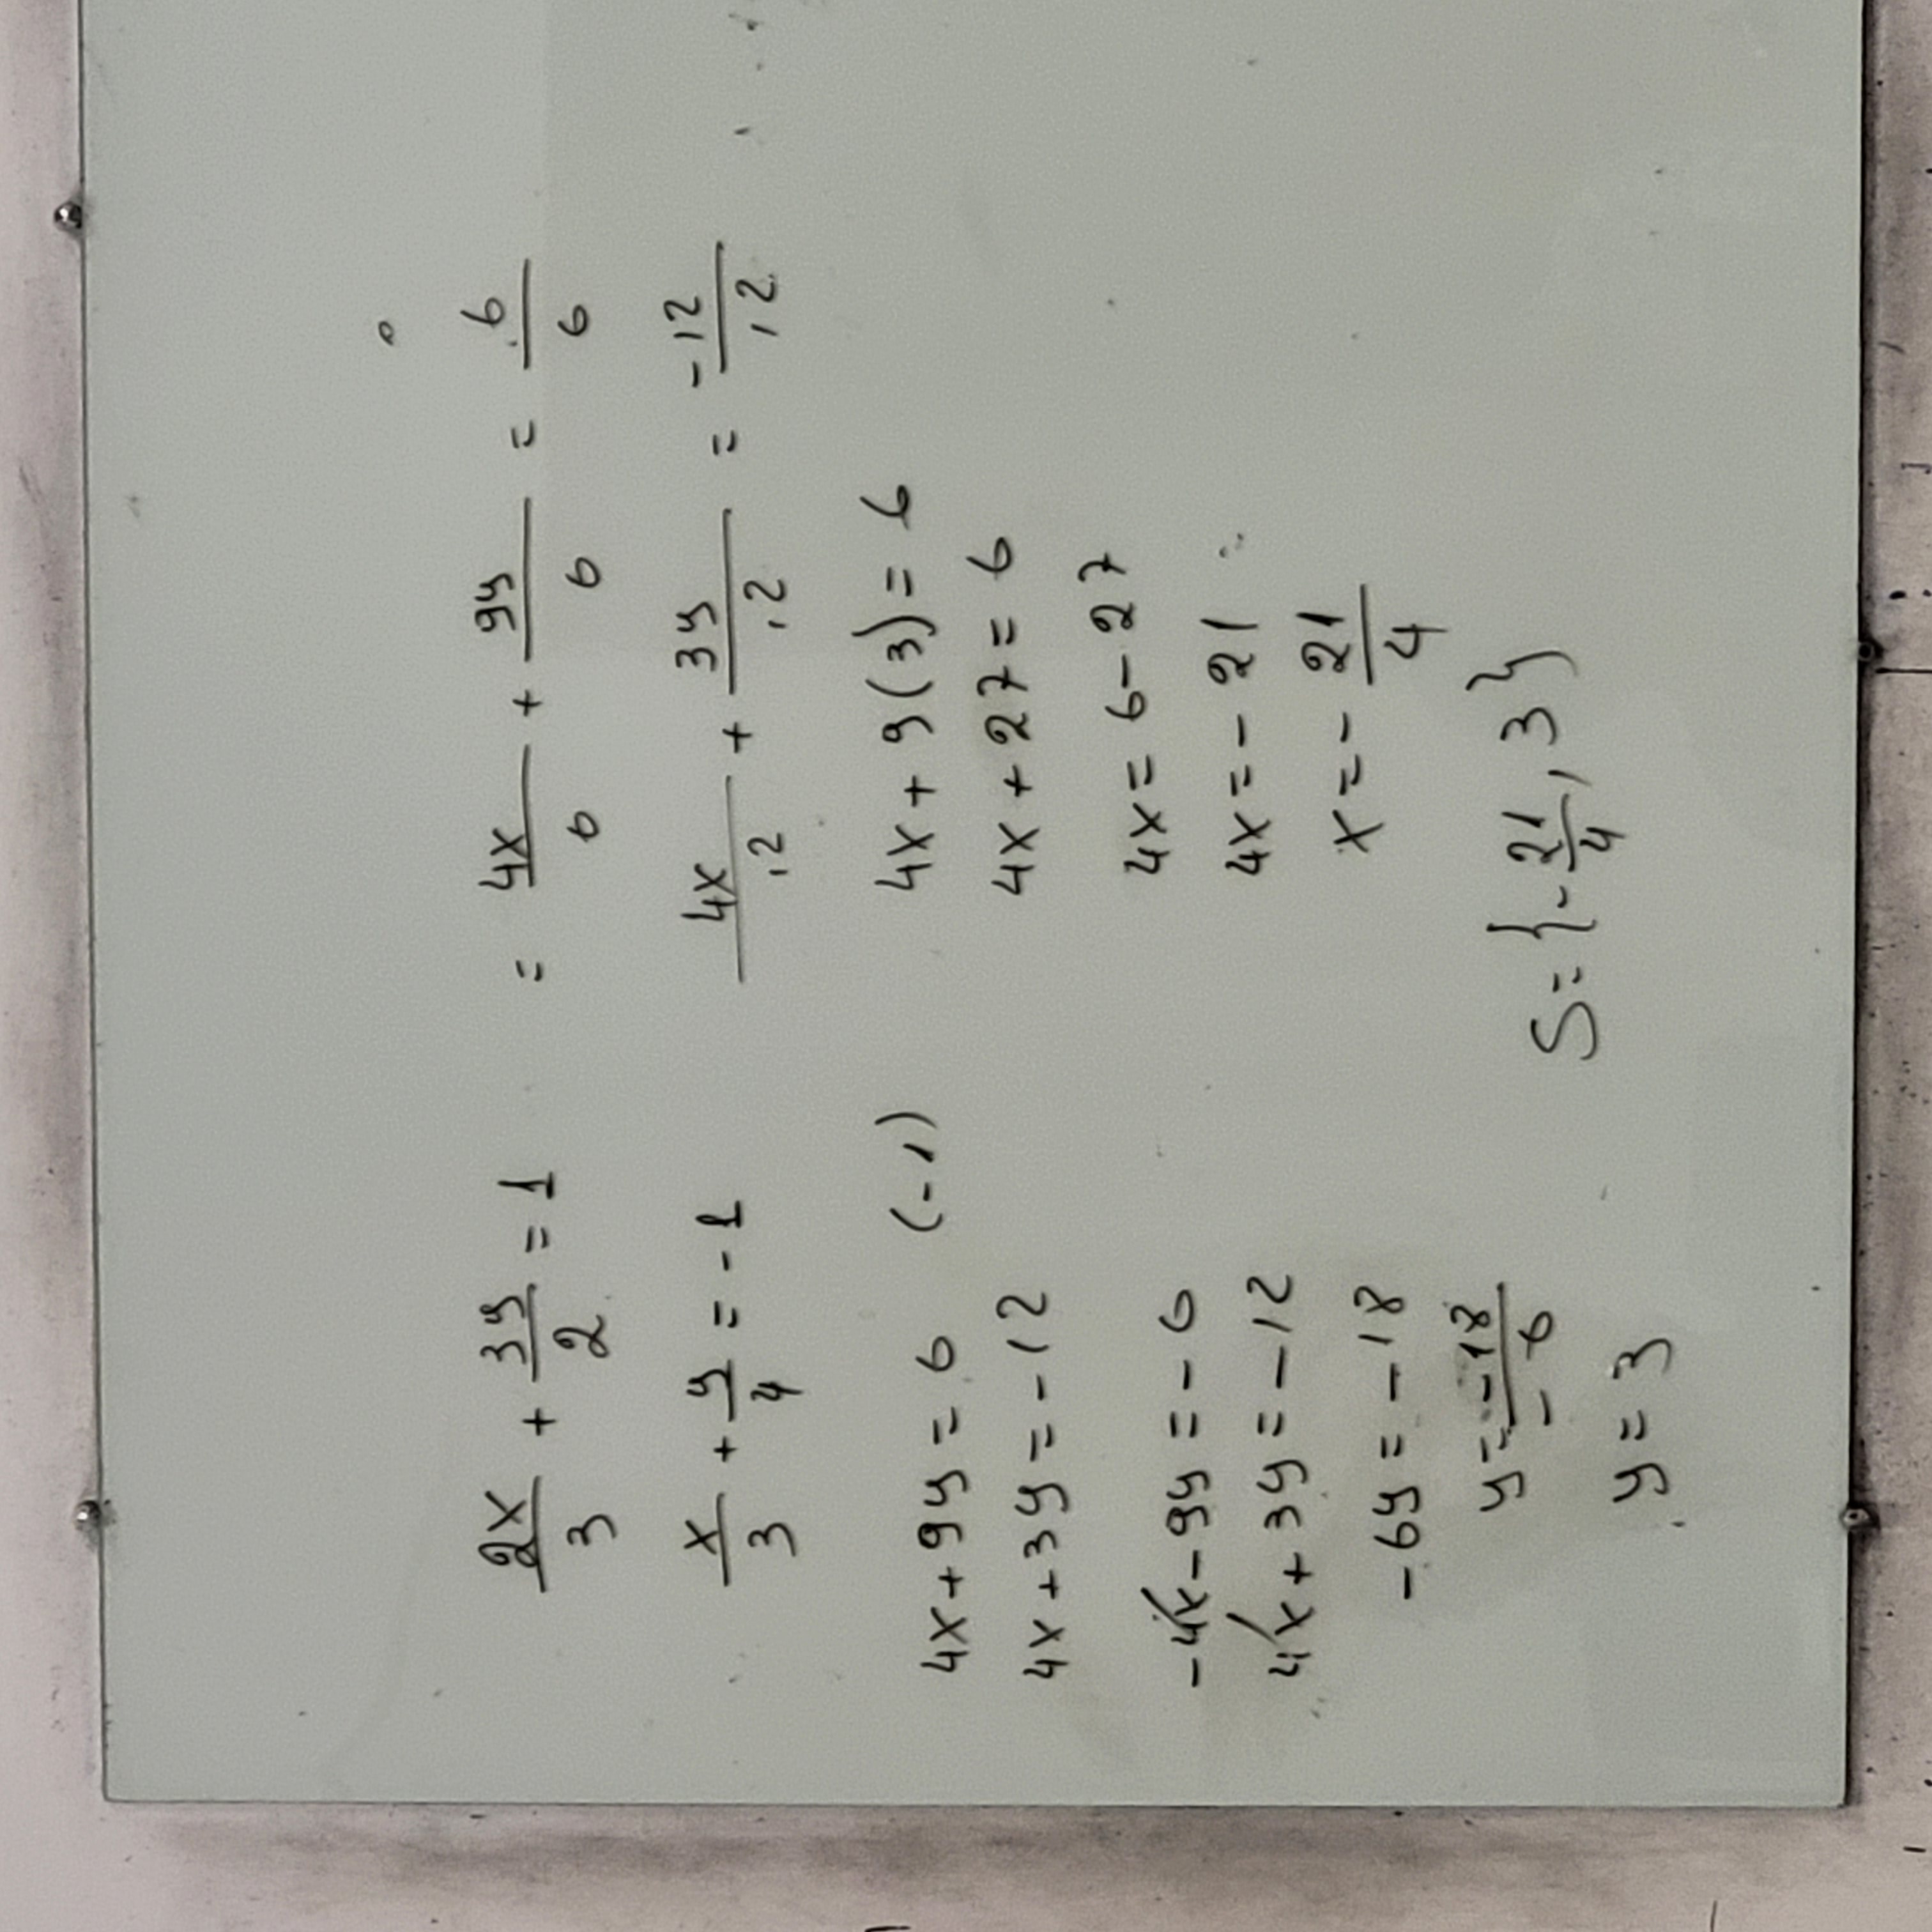 2x/3 + 3y/2 = 1 = 4x/6 + 9y/6 = 6/6
x/3 + y/4 = -1 4x/12 + 3y/12 = -12/12
4x + 9y = 6 (-1)
4x + 3y = -12
-4x - 9y = -6
4x + 3y = -12
-6y = -18
y = -18/-6
y = 3
4x + 9(3) = 6
4x + 27 = 6
4x = 6 - 27
4x = - 21
x = - 21/4
S = {-21/4, 3}